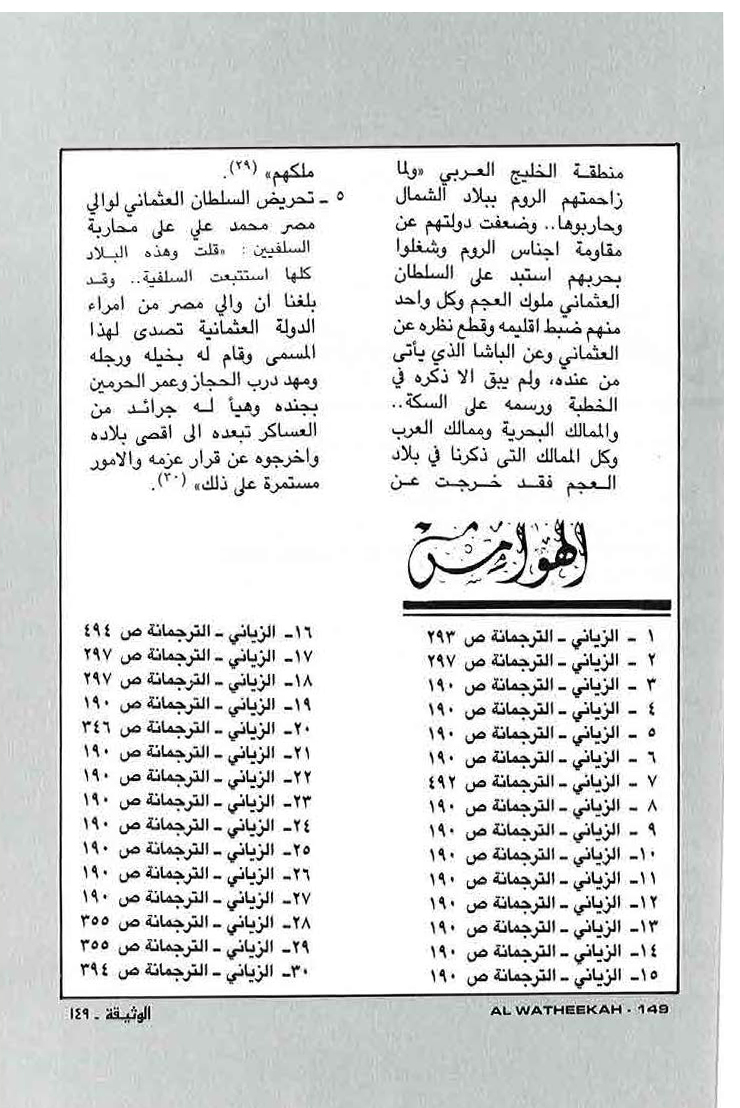 منطقة الخليج العربي «ولما
زاحمتهم الروم ببلاد الشمال
وحاربوها.. وضعفت دولتهم عن
مقاومة اجناس الروم وشغلوا
بحربهم استبد على السلطان
العثماني ملوك العجم وكل واحد
منهم ضبط اقليمه وقطع نظره عن
العثماني وعن الباشا الذي يأتى
من عنده، ولم يبق الا ذكره في
الخطبة ورسمه على السكة..
والممالك البحرية وممالك العرب
وكل الممالك التى ذكرنا في بلاد
العجم فقد خرجت عن
ملكهم» (٢٩).
٥ - تحريض السلطان العثماني لوالي
مصر محمد علي على محاربة
السلفيين : «قلت وهذه البلاد
كلها استتبعت السلفية.. وقد
بلغنا ان والي مصر من امراء
الدولة العثمانية تصدى لهذا
المسمى وقام له بخيله ورجله
ومهد درب الحجاز وعمر الحرمين
بجنده وهيأ له جرائد من
العساكر تبعده الى اقصى بلاده
واخرجوه عن قرار عزمه والامور
مستمرة على ذلك» (٣٠).
الهوامش
١ - الزياني - الترجمانة ص ٢٩٣
٢ - الزياني - الترجمانة ص ٢٩٧
٣ - الزياني - الترجمانة ص ١٩٠
٤ - الزياني - الترجمانة ص ١٩٠
٥ - الزياني - الترجمانة ص ١٩٠
٦ - الزياني - الترجمانة ص ١٩٠
٧ - الزياني - الترجمانة ص ٤٩٢
٨ - الزياني - الترجمانة ص ١٩٠
٩ - الزياني - الترجمانة ص ١٩٠
١٠- الزياني - الترجمانة ص ١٩٠
١١- الزياني - الترجمانة ص ١٩٠
١٢- الزياني - الترجمانة ص ١٩٠
١٣- الزياني - الترجمانة ص ١٩٠
١٤- الزياني - الترجمانة ص ١٩٠
١٥- الزياني - الترجمانة ص ١٩٠
١٦- الزياني - الترجمانة ص ٤٩٤
١٧- الزياني - الترجمانة ص ٢٩٧
١٨- الزياني - الترجمانة ص ٢٩٧
١٩- الزياني - الترجمانة ص ١٩٠
٢٠- الزياني - الترجمانة ص ٣٤٦
٢١- الزياني - الترجمانة ص ١٩٠
٢٢- الزياني - الترجمانة ص ١٩٠
٢٣- الزياني - الترجمانة ص ١٩٠
٢٤- الزياني - الترجمانة ص ١٩٠
٢٥- الزياني - الترجمانة ص ١٩٠
٢٦- الزياني - الترجمانة ص ١٩٠
٢٧- الزياني - الترجمانة ص ١٩٠
٢٨- الزياني - الترجمانة ص ٣٥٥
٢٩- الزياني - الترجمانة ص ٣٥٥
٣٠- الزياني - الترجمانة ص ٣٩٤
AL WATHEEKAH - 149
الوثيقة - ١٤٩